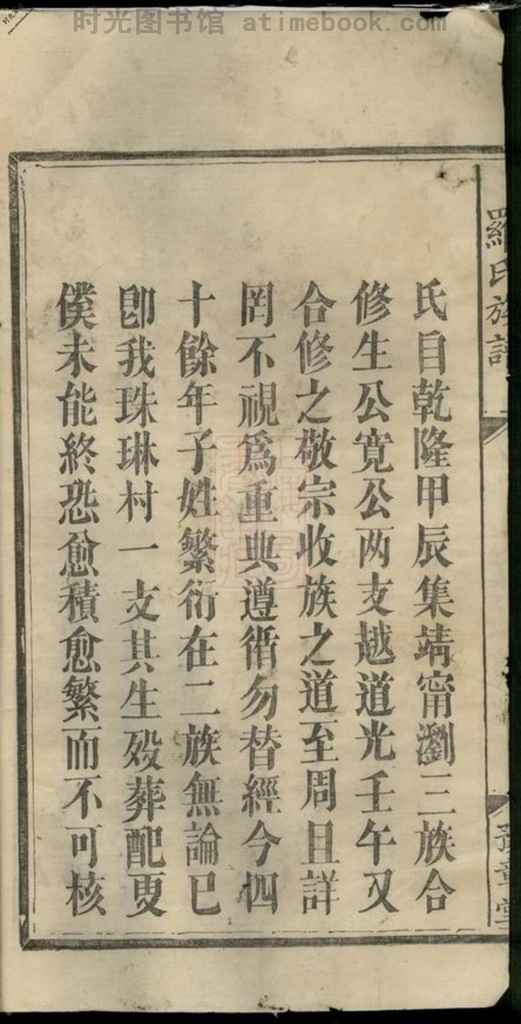 时光图书馆 atimebook.com
羅氏族譜
氏目乾隆甲辰集靖甯瀏三族合
修生公寬公两支越道光壬午又
合修之敬宗收族之道至周且詳
罔不視爲重典遵循勿替經今四
十餘年子姓繁衍在二族無論已
卽我珠琳村一支其生殁葬配更
僕未能終恐愈積愈繁而不可核
豫章堂